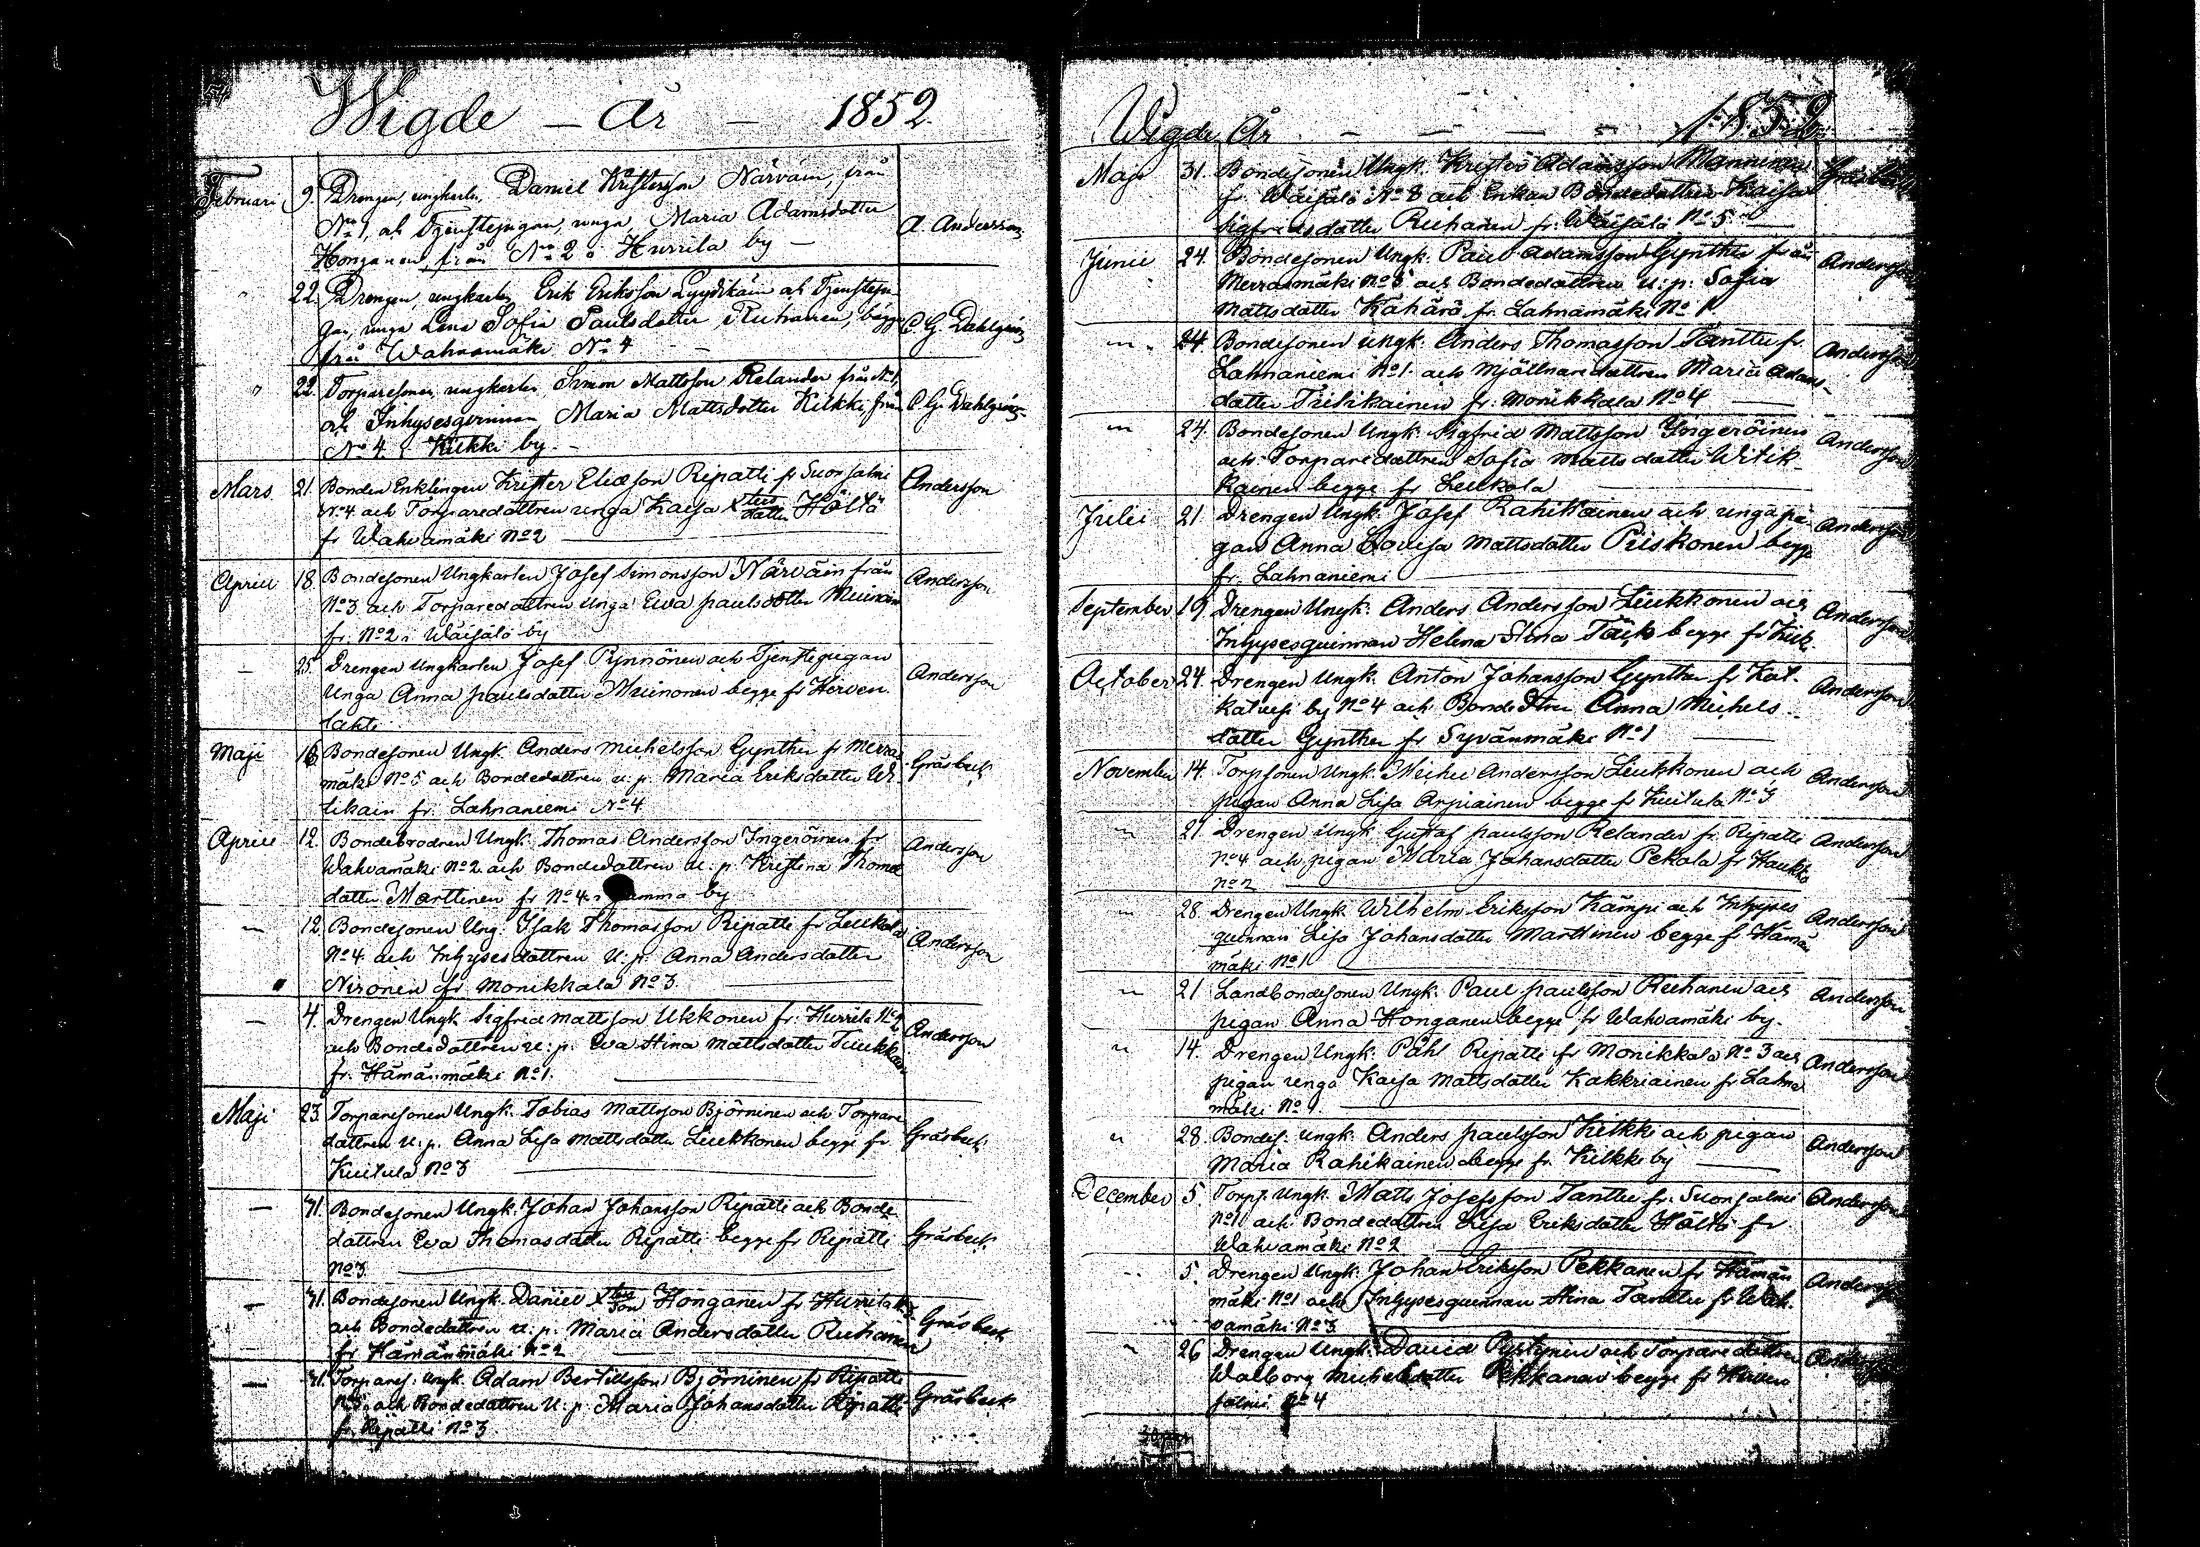 Wigde - År - 1852.
Februari 9. Drengen, ungkarln, Daniel Kristersson Närväin, från
No 1, ah Tjenstepigan, unga Maria Adamsdotter A. Andersson
Honganen, från No 2 i Hurrila by -
" 22. Drengen, ungkarln Erik Eriksson Lyydikäin ah Tjenstepi
gan, unga Lena Sofia Paulsdotter Ruhanen, bägge C. G. Dahlgrén
från Wahvamäki No 4 -
" 22. Torparesonen, ungkarln Simon Mattsson Relander från No 1,
ah Inhysesqvinnan Maria Mattsdotter Kilkki, från C. G. Dahlgrén
No 4 i Kilkki by. -
Mars 21. Bonden Enklingen Krister Eliasson Ripatti fr Suonsalmi Andersson
No 4 och Torparedottren unga Kaisa Xters dotter Höltä
fr Wahvamäki No 2
Aprill 18. Bondesonen Ungkarlen Josef Simonsson Närväin från Andersson
No 3 och Torparedottren unga Ewa Paulsdotter Muinon
fr. No 2 i Wäisälä by
- 25. Drengen Ungkarlen Josef Pynnönen och Tjenstepigan Andersson
Unga Anna Paulsdotter Muinonen begge fr Hirven
lahti
Maji 16 Bondesonen Ungk. Anders Michelsson Gynther fr Merra Gråsbeck
mäki No 5 och Bondedottren u. p. Maria Eriksdotter Wi-
tikain fr. Lahnaniemi No 4
Aprill 12. Bondebrodren Ungk. Thomas Andersson Ingeröinen fr Andersson
Wahvamäki No 2 och Bondedottren u. p. Kristina Thomas
dotter Marttinen fr No 4 i samma by
- 12. Bondesonen Ung. Isak Thomasson Ripatti fr Liukola Andersson
No 4 och Inhysesdottren u. p. Anna Andersdotter
Nironen fr Monikkala No 3
- 4. Drengen Ungk Sigfrid Mattsson Ukkonen fr. Hurrila No 2 Andersson
och Bondedottren u. p. Eva Stina Mattsdotter Tuukkan
fr. Hämänmäki No 1.
Maji 23. Torparesonen Ungk. Tobias Mattsson Björninen och Torpare
dottren u. p. Anna Lisa Mattsdotter Liukkonen begge fr Gråsbeck
Kuitula No 3
- 31. Bondesonen Ungk. Johan Johansson Ripatti och Bonde
dottren Eva Thomasdotter Ripatti begge fr Ripatti Gråsbeck
No 3
- 31. Bondesonen Ungk. Daniel Xters son Honganen fr Hurrila Gråsbeck
och Bondedottren u. p. Maria Andersdotter Ruhanen
fr Hämänmäki No 2
- 31. Torpares. ungk. Adam Bertillsson Björninen fr Ripatti
No 5 och Bondedottren u. p. Maria Johansdotter Ripatti Gråsbeck
fr. Ripatti No 3
Wigde År - - - - 1852
Maji 31. Bondesonen Ungk. Krister Adamsson Manninen Gråsbeck
fr. Wäisälä No 8 och Enkan Bondedottren Kaisa
Sigfridsdotter Ruhanen fr. Wäisälä No 5
Junii 24. Bondesonen Ungk. Paul Adamsson Gynther från Andersson
Merramäki No 5 och Bondedottren u. p. Sofia
Mattsdotter Kähärä fr. Lahnamäki No 1
" 24. Bondesonen ungk. Anders Thomasson Tanttu fr. Andersson
Lahnaniemi No 1. och Mjöllnaredottren Maria Adams-
dotter Tiilikainen fr. Monikkala No 4
" 24. Bondesonen Ungk. Sigfrid Mattsson Yngeröinen Andersson
och Torparedottren Sofia Mattsdotter Witik-
kainen begge fr Liukola
Julii 21. Drengen Ungk. Josef Rahikainen och unga pi- Andersson
gan Anna Lovisa Mattsdotter Piiskonen begge
fr. Lahnaniemi
September 19 Drengen Ungk. Anders Andersson Liukkonen och Andersson
Inhysesquinnan Helena Stina Täck begge fr Kilk.
October 24. Drengen Ungk. Anton Johansson Gynther fr Kat- Andersson
kalusi by No 4 och Bondedttren Anna Michels-
dotter Gynther fr Syvänmäki No 1
November 14. Torpsonen Ungk. Michel Andersson Liukkonen och Andersson
pigan Anna Lisa Arpiainen begge fr Kuitula No 3
" 21 Drengen Ungk Gustaf Paulsson Relander fr. Ripatti Andersson
No 4 och pigan Maria Johansdotter Pekola fr Haukka
No 2
" 28. Drengen Ungk Wilhelm Eriksson Kämpi och Inhyses Andersson
quinnan Lisa Johansdotter Marttinen begge fr Hämän
mäki No 1
" 21 Landbondesonen Ungk. Paul Paulsson Ruhanen och Andersson
pigan Anna Honganen begge fr Wahvamäki by.
" 14. Drengen Ungk. Påhl Ripatti fr Monikkala No 3 och Andersson
pigan unga Kaisa Mattsdotter Kakkriainen fr Lahna
mäki No 1.
" 28. Bondes. ungk. Anders Paulsson Kilkki och pigan Andersson
Maria Rahikainen begge fr. Kilkki by
December 5. Torps. Ungk. Matts Josefsson Tanttu fr. Suonsalmi Andersson
No 11 och Bondedottren Lisa Eriksdotter Höltä fr
Wahvamäki No 2
" 5. Drengen Ungk. Johan Eriksson Pekkanen fr Hämän Andersson
mäki No 1 och Inhysesquinnan Stina Tanttu fr Wah-
vamäki No 3
" 26 Drengen Ungk. David Pystynen och Torparedottren
Walborg Michelsdotter Pekkanen begge fr Hirven
salmi No 4